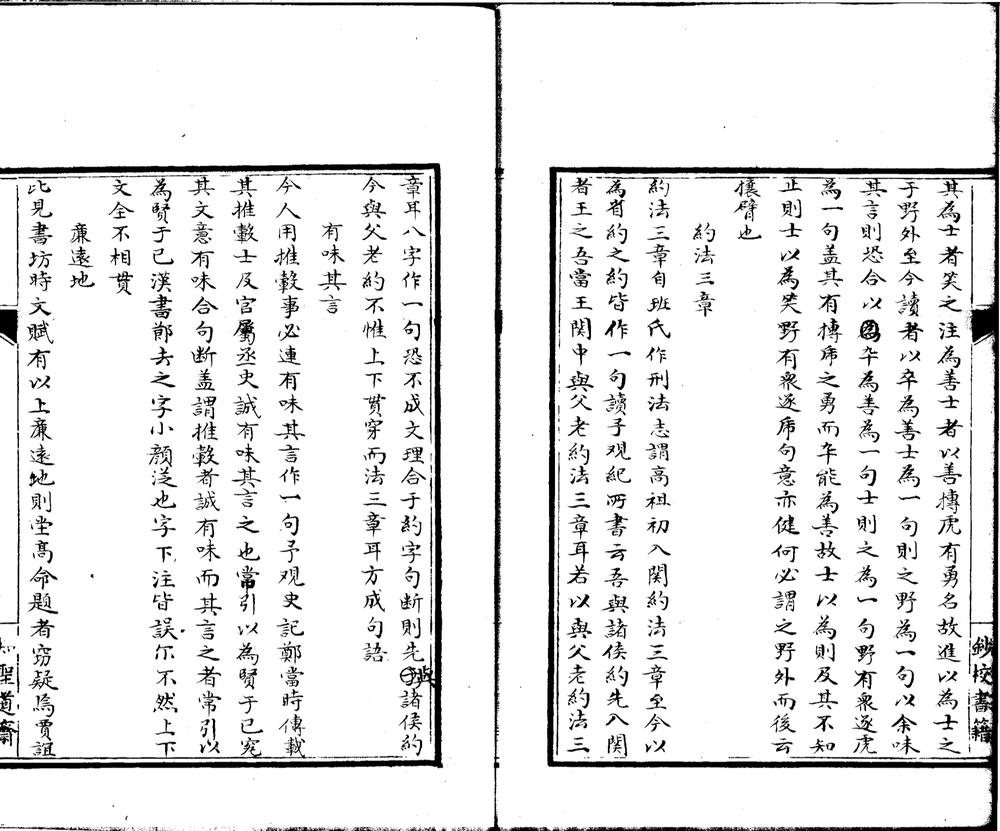 其為士者笑之注為善士者以善搏虎有勇名故進以為士之
于野外至今讀者以卒為善士為一句則之野為一句以余味
其言則恐合以卒為善為一句士則之為一句野有衆逐虎
為一句盖其有搏虎之勇而卒能為善故士以為則及其不知
止則士以為笑野有衆逐虎句意亦健何必謂之野外而後云
攘臂也
約法三章
約法三章自班氏作刑法志謂高祖初入関約法三章至今以
為省約之約皆作一句讀予观紀所書云吾與諸侯約先入関
者王之吾當王関中與父老約法三章耳若以與父老約法三
章耳八字作一句恐不成文理合于約字句断則先與諸侯約
今與父老約不惟上下貫穿而法三章耳方成句語
有味其言
今人用推轂事必連有味其言作一句予观史記鄭當時傳載
其推轂士及官屬丞史誠有味其言之也常引以為賢于已究
其文意有味合句断盖謂推轂者誠有味而其言之者常引以
為賢于已漢書郤去之字小顔注也字下注皆誤尓不然上下
文全不相貫
廉遠地
比見書坊時文賦有以上廉遠地則堂髙命題者窃疑焉賈誼
鈔校書籍
知聖道齋